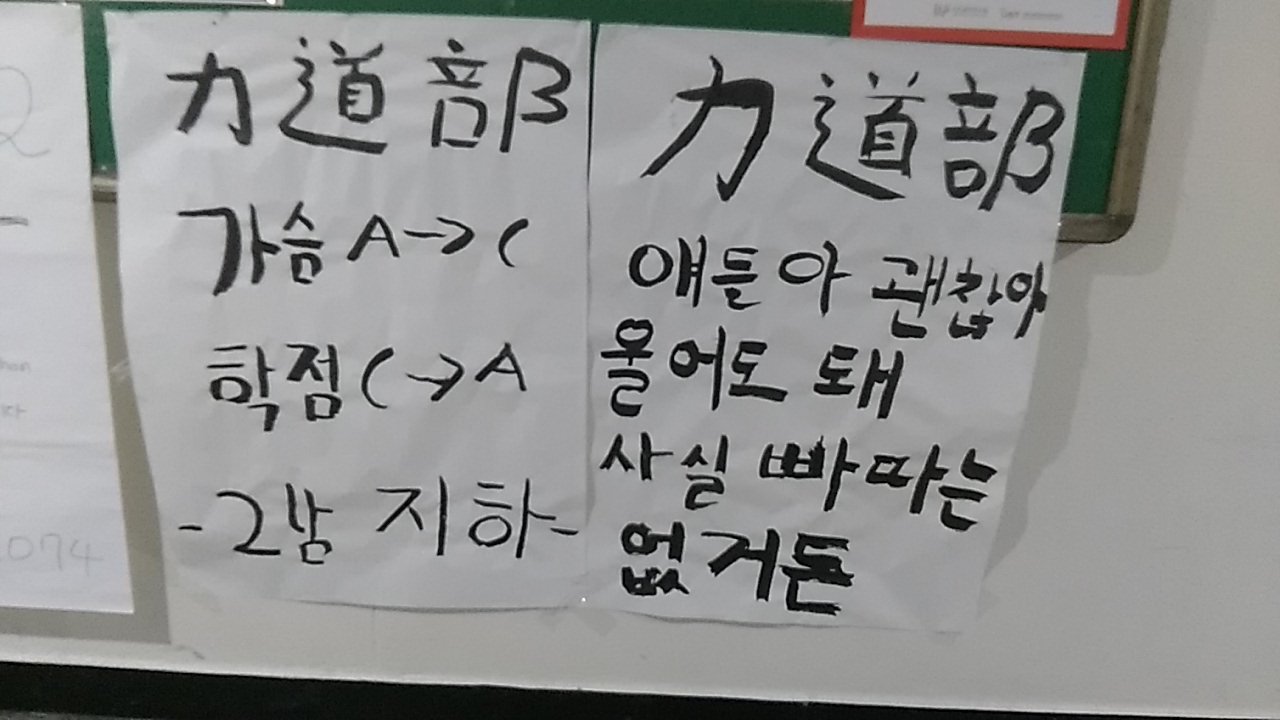 力道部
가슴 A→C
학점 C→A
-2남 지하-
力道部
얘들아 괜찮아
울어도 돼
사실 빠따는
없거든
074